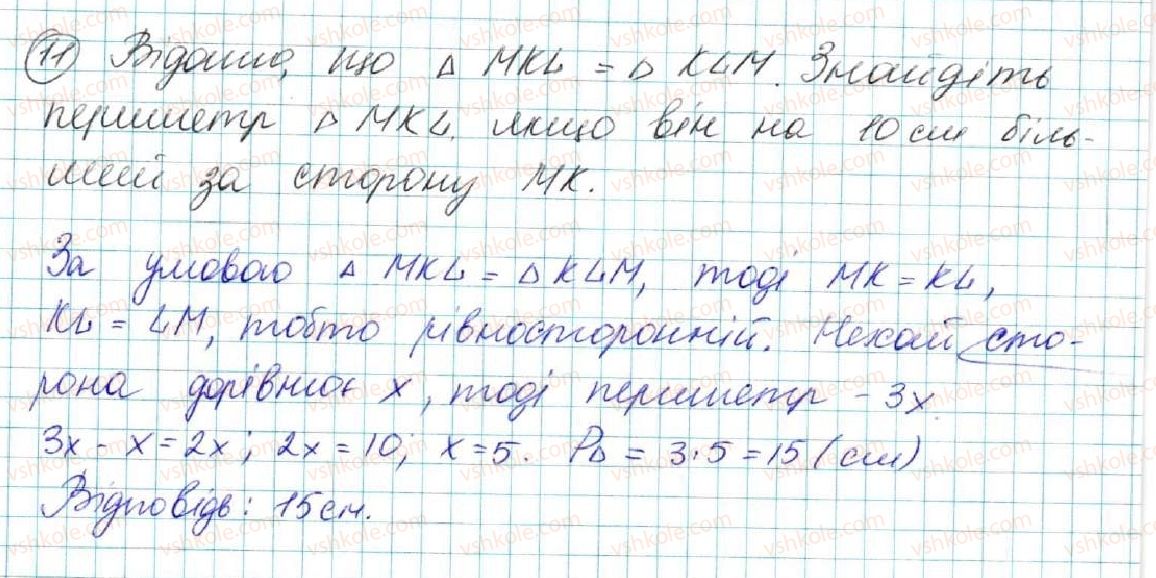 11 Відомо, що △ MKL = △ KLM. Знайдіть
периметр △ MKL, якщо він на 10 см біль-
ший за сторону MK.
За умовою △ MKL = △ KLM, тоді MK = KL,
KL = LM, тобто рівносторонній. Нехай сто-
рона дорівнює x, тоді периметр - 3x.
3x - x = 2x; 2x = 10; x = 5. P△ = 3·5 = 15 (см)
Відповідь: 15 см.